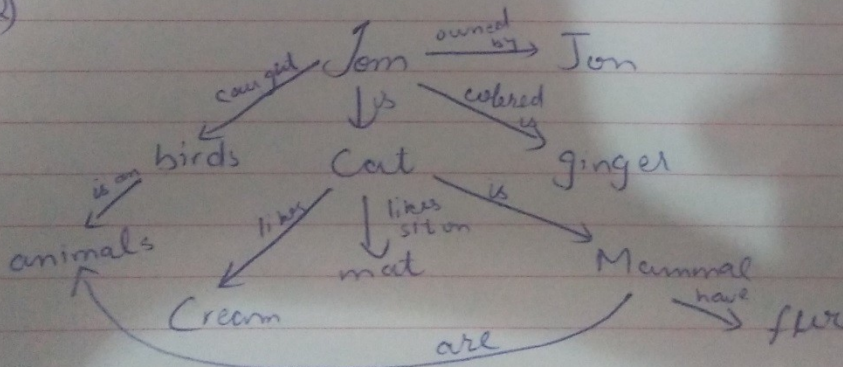 2)
Jom owned by Jon
caught is colored is
birds Cat ginger
is an likes likes sit on is
animals mat Mammal
Cream have fur
are